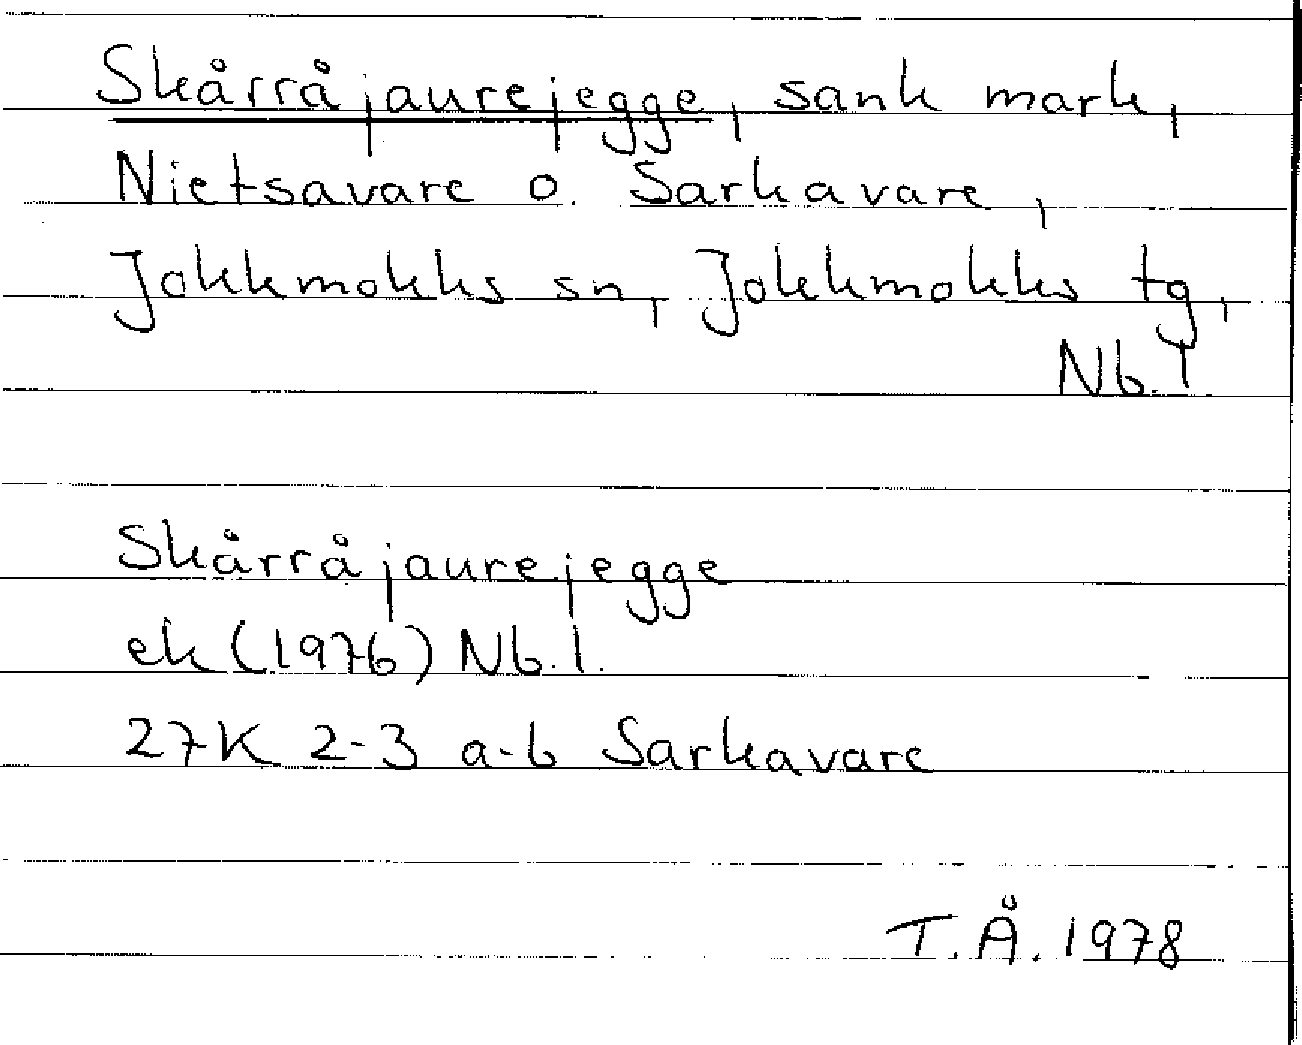 Skårråjaurejegge, sank mark,
Nietsavare o. Sarkavare,
Jokkmokks sn, Jokkmokks tg,
Nb.l
Skårråjaurejegge
ek (1976) Nb.l.
27K 2-3 a-b Sarkavare
T.Å. 1978